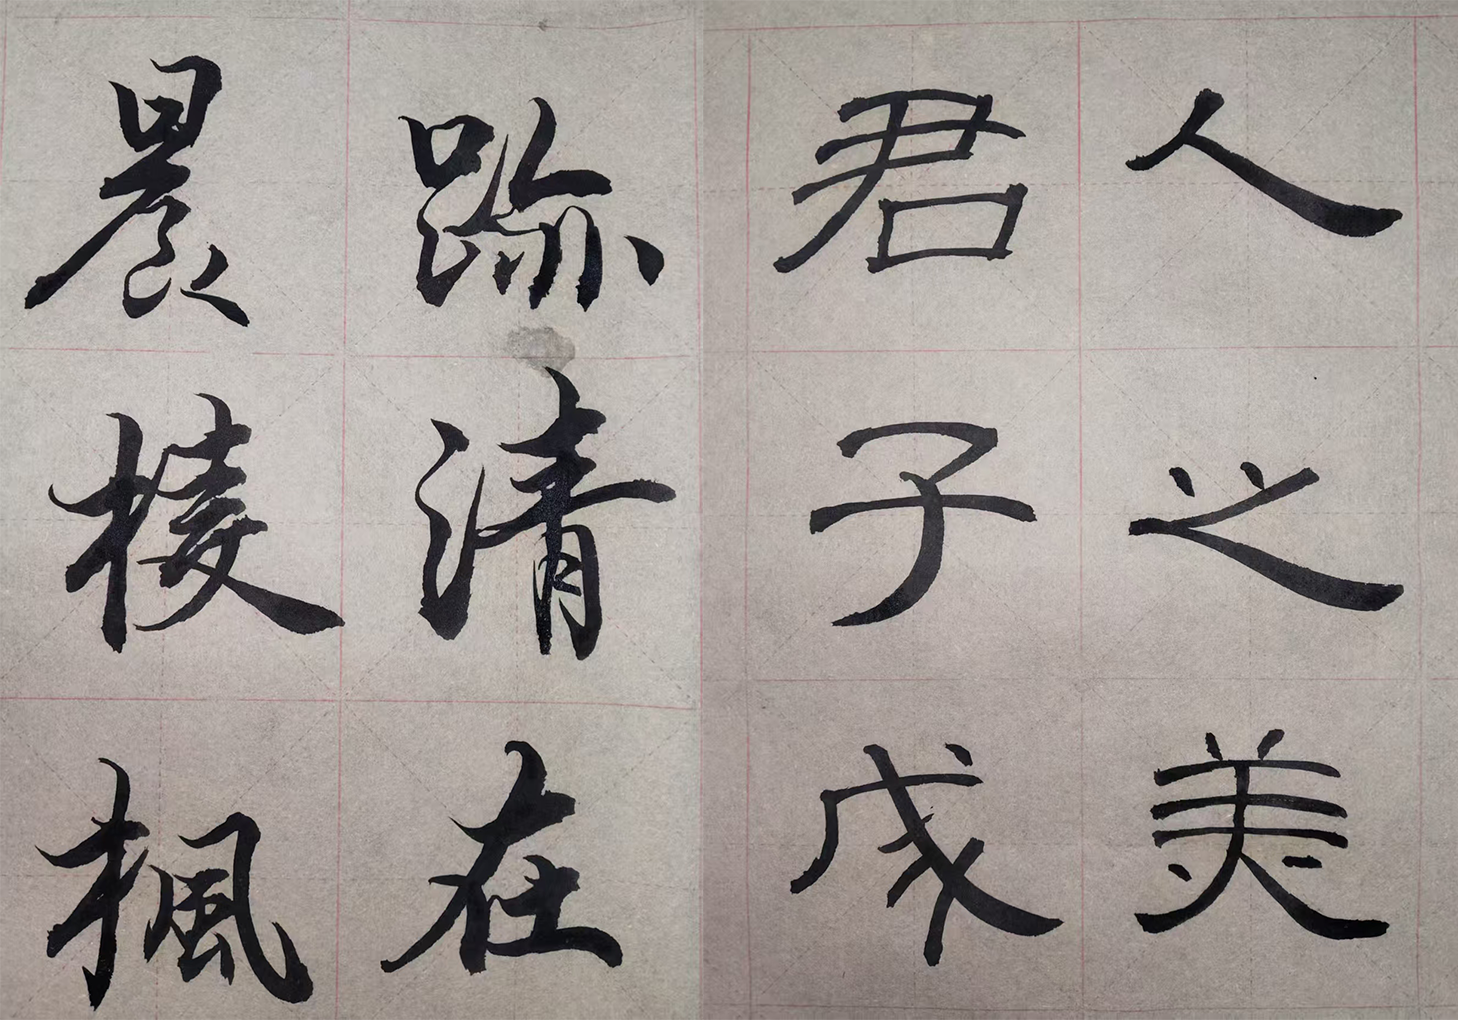 君子成
人之美
跡清在
晨棱楓